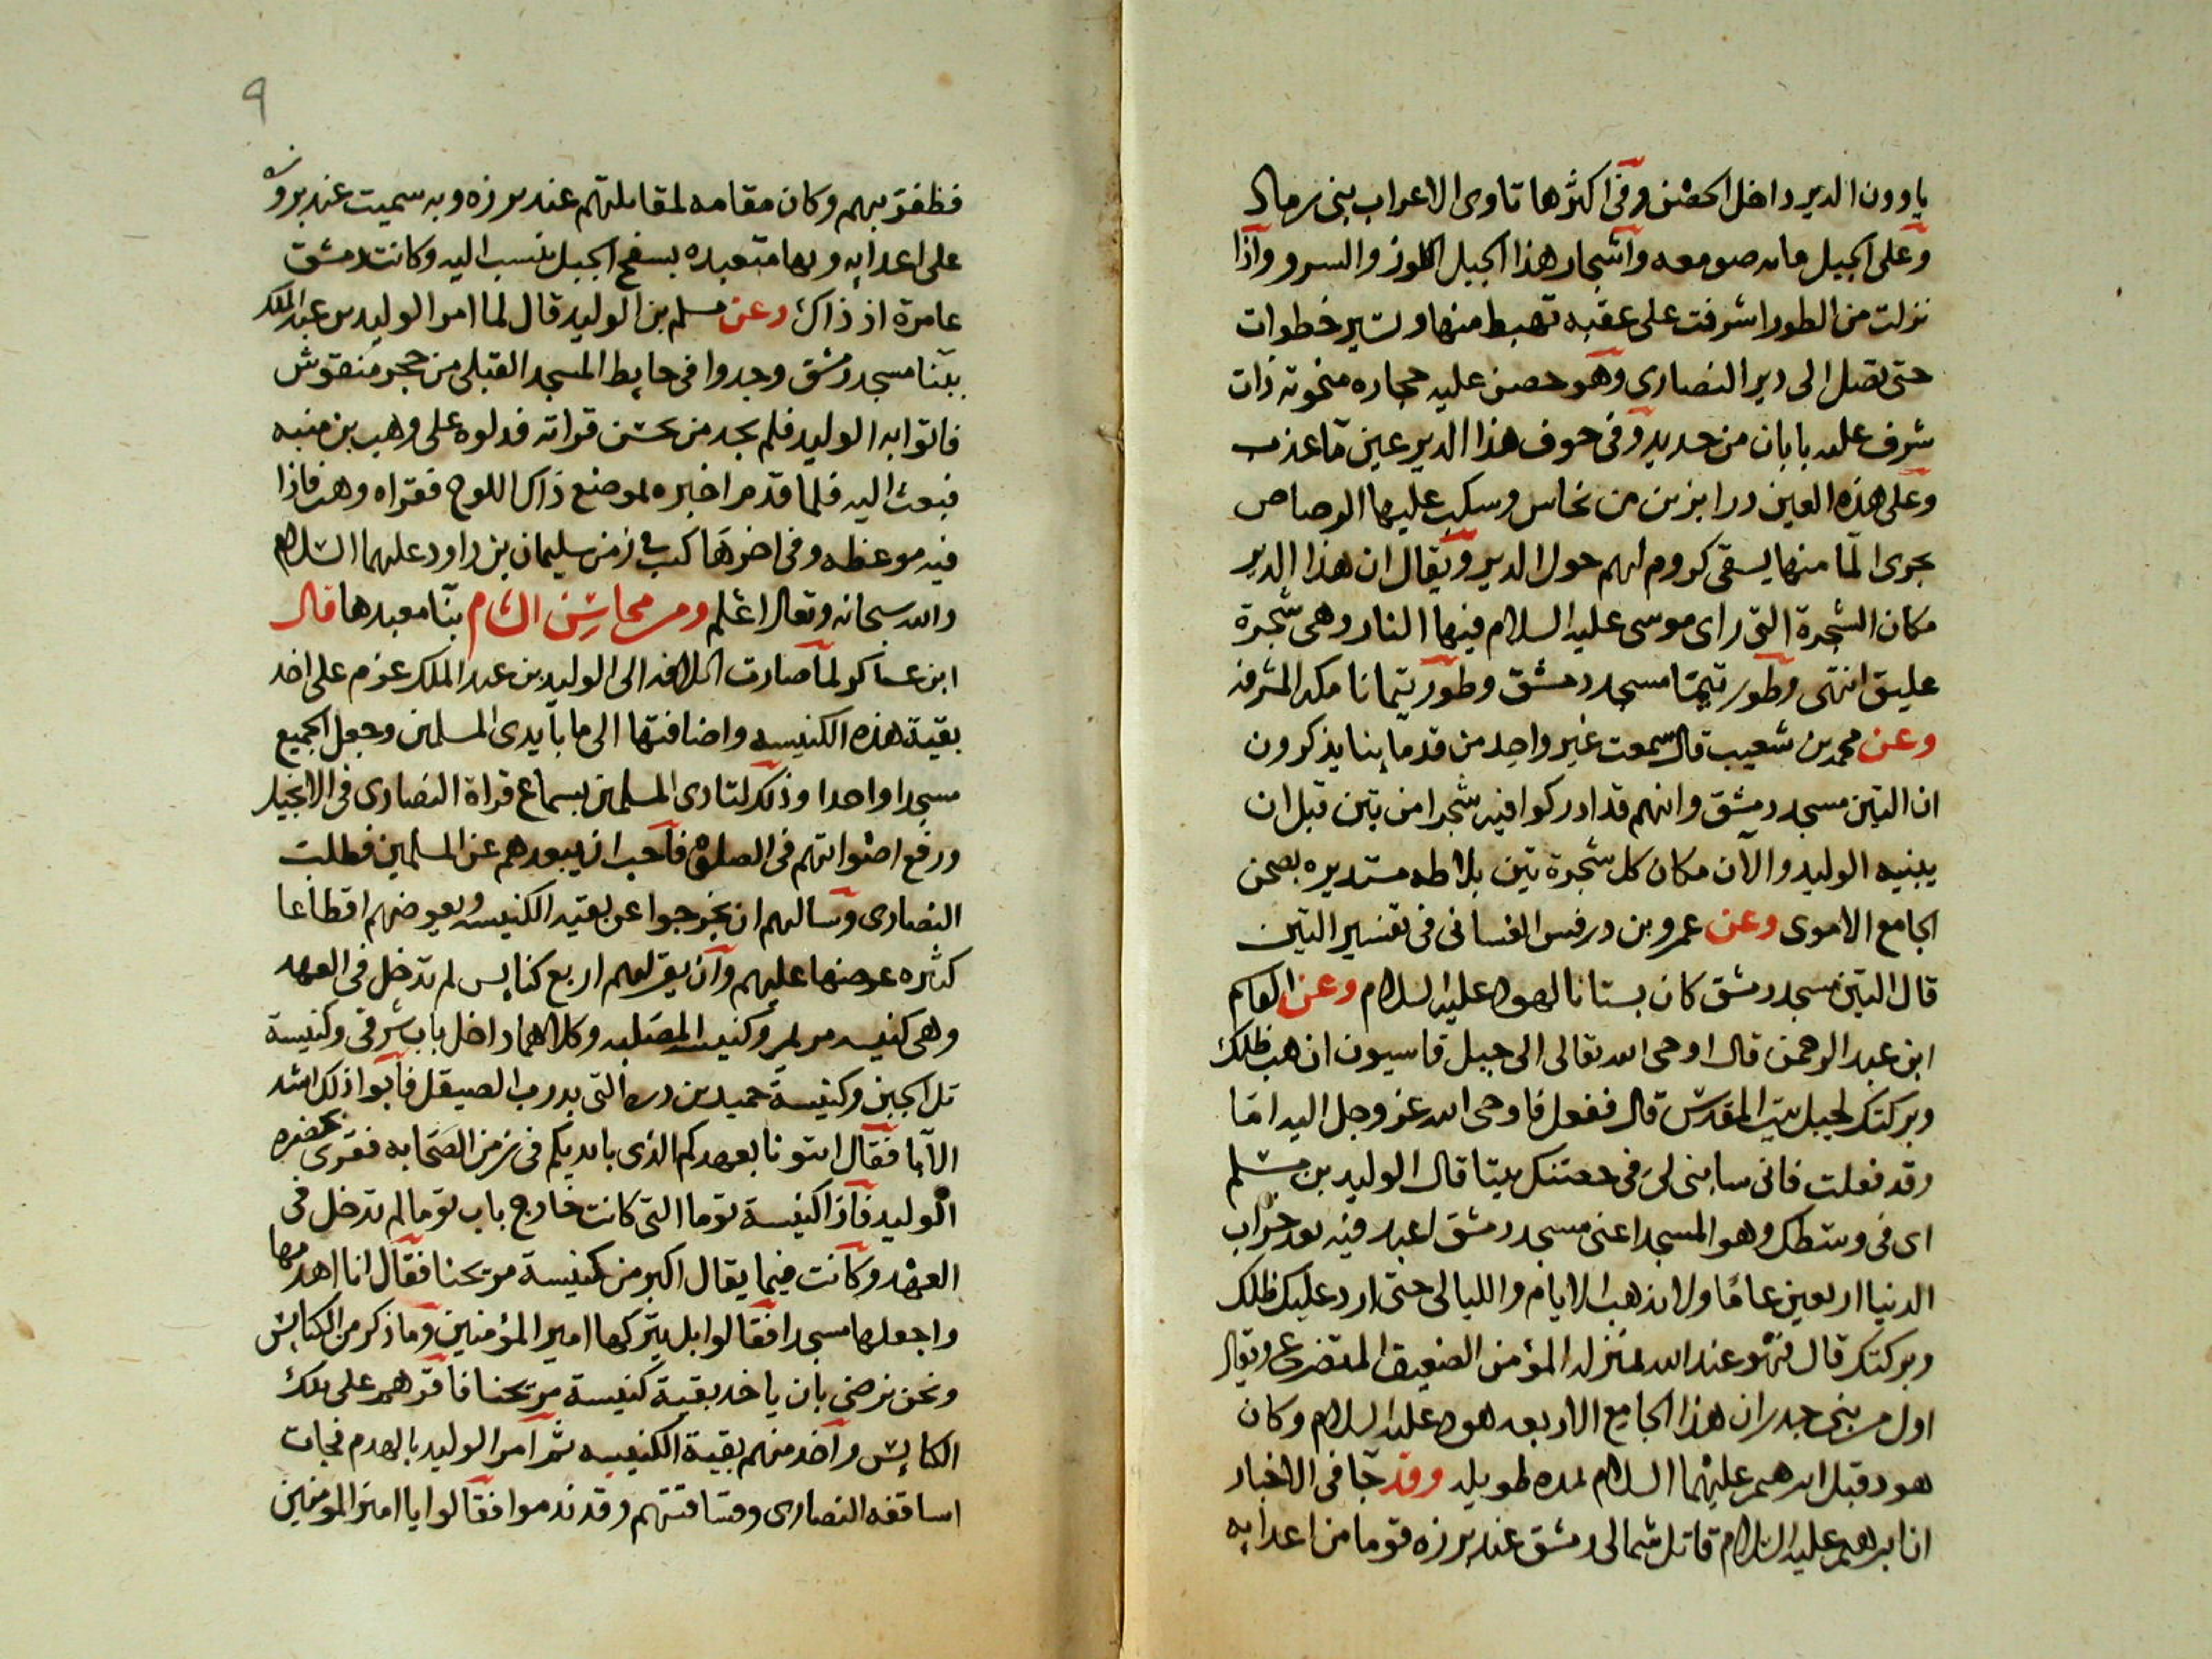 ياوون الدير داخل الحصن وفى اكثرها تاوى الاعراب بنى رمال
وعلى الجبل مايه صومعه واشجار هذا الجبل اللوز والسرو واذا
نزلت من الطور اشرفت على عقبه تهبط منها وتسير خطوات
حتى تصل الى دير النصارى وهو حصن عليه حجاره منحوته ذات
شرف عليه بابان من حديد وفى جوف هذا الدير عين ما عذب
وعلى هذه العين درابزين من نحاس وسكب عليها الرصاص
يجرى الما منها يسقى كروم لهم حول الدير ويقال ان هذا الدير
مكان الشجرة التى راى موسى عليه السلام فيها النار وهى شجرة
عليق انتهى وطور تيمنا مسجد دمشق وطور تيمانا مكه المشرفه
وعن محمد بن شعيب قال سمعت غير واحد من قدماينا يذكرون
ان التين مسجد دمشق وانهم قد ادركوا فيه شجرا من تين قبل ان
يبنيه الوليد والآن مكان كل شجرة تين بلاطه مستديره بصحن
الجامع الاموى وعن عمرو بن درفس الغسانى فى تفسير التين
قال التين مسجد دمشق كان بستانا لهود عليه السلام وعن القاسم
ابن عبد الرحمن قال اوحى الله تعالى الى جبل قاسيون ان هب ظلك
وبركتك لجبل بيت المقدس قال ففعل فاوحى الله عز وجل اليه اما
وقد فعلت فانى سابنى لى فى حضنك بيتا قال الوليد بن مسلم
اى فى وسطك وهو المسجد اعنى مسجد دمشق اعبد فيه بعد خراب
الدنيا اربعين عاما ولا تذهب الايام والليالى حتى ارد عليك ظلك
وبركتك قال فهو عند الله بمنزله المؤمن الضعيف المتضرع ويقال
اول من بنى جدران هذا الجامع الاربعه هود عليه السلام وكان
هود قبل ابرهيم عليهما السلام لمده طويله وقد جا فى الاخبار
ان ابرهيم عليه السلام قاتل شمالى دمشق عند برزه قوما من اعدايه
٩
فظفر بهم وكان مقامه لمقابلتهم عند برزه وبه سميت عند بروزه
على اعدايه وبها متعبده بسفح الجبل تنسب اليه وكانت دمشق
عامرة اذ ذاك وعن مسلم بن الوليد قال لما امر الوليد بن عبد الملك
ببنا مسجد دمشق وجدوا فى حايط المسجد القبلى من حجر منقوش
فاتوا به الوليد فلم يجد من يحسن قراته فدلوه على وهب بن منبه
فبعث اليه فلما قدم اخبره لموضع ذاك اللوح فقراه وهب فاذا
فيه موعظه وفى اخرها كتب فى زمن سليمان بن داود عليهما السلام
والله سبحانه وتعالى اعلم ومن محاسن الشام بنا معبدها قال
ابن عساكر لما صارت الخلافه الى الوليد بن عبد الملك عزم على اخد
بقية هذه الكنيسه واضافتها الى ما بايدى المسلمين وجعل الجميع
مسجدا واحدا وذلك لتادى المسلمين بسماع قراة النصارى فى الانجيل
ورفع اصواتهم فى الصلاة فاحب ان يبعدهم عن المسلمين فطلب
النصارى وسالهم ان يخرجوا عن بقيه الكنيسه ويعوضهم اقطاعا
كثيره عرضها عليهم وان يقر لهم اربع كنايس لم تدخل فى العهد
وهى كنيسه مريم وكنيسه المصلبه وكلاهما داخل باب شرقى وكنيسة
تل الجبن وكنيسة حميد بن دره التى بدرب الصيقل فابوا ذلك اشد
الابا فقال ايتونا بعهدكم الذى بايديكم فى زمن الصحابه فقرى بحضره
الوليد فاذا كنيسة توما التى كانت خارج باب توما لم تدخل فى
العهد وكانت فيما يقال اكبر من كنيسة مريحنا فقال انا اهدمها
واجعلها مسجدا فقالوا بل يتركها امير المؤمنين وما ذكر من الكنايس
ونحن نرضى بان ياخد بقية كنيسة مريحنا فاقرهم على تلك
الكنايس واخد منهم بقية الكنيسه ثم امر الوليد بالهدم فجات
اساقفه النصارى وقساقستهم وقد ندموا فقالوا يا امير المومنين